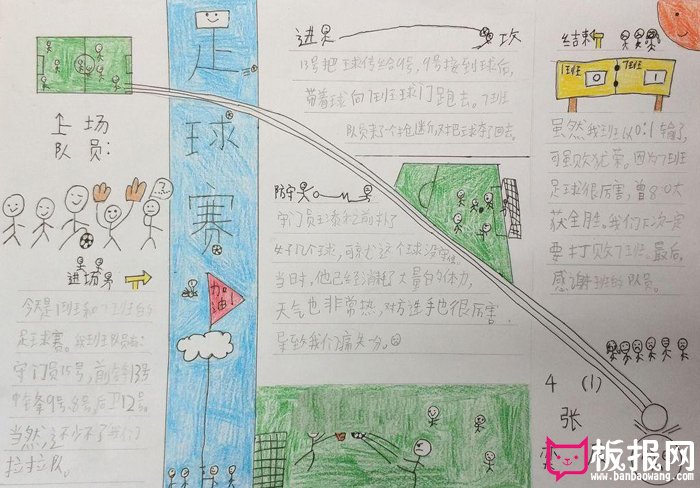 足球赛
加油!
上场
队员:
进场
今天是1班和7班的
足球赛。我班队员有:
守门员15号,前锋13号
中锋9号、8号,后卫12号。
当然,还少不了我们
拉拉队。
进 攻
13号把球传给9号,9号接到球后,
带着球向7班球门跑去。7班
队员来了个抢断,又把球夺了回去。
防守
当时,他已经消耗了大量的体力,
天气也非常热,对方选手也很厉害
导致我们痛失一分。
结束
1班
0
7班
1
虽然我班以0:1输了,
可虽败犹荣。因为7班
足球很厉害,曾8:0大
获全胜。我们下次一定
要打败7班。最后,
感谢班的队员。
4 (1)
张
板报网
www.banbaowang.com